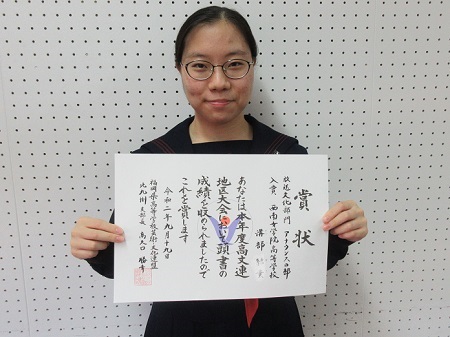 賞状
放送文化部門 アナウンスの部
入賞 西南女学院高等学校
溝部
あなたは本年度高文連
地区大会において頭書の
成績を収められましたので
これを賞します
令和二年九月十九日
福岡県高等学校芸術文化連盟
北九州支部長